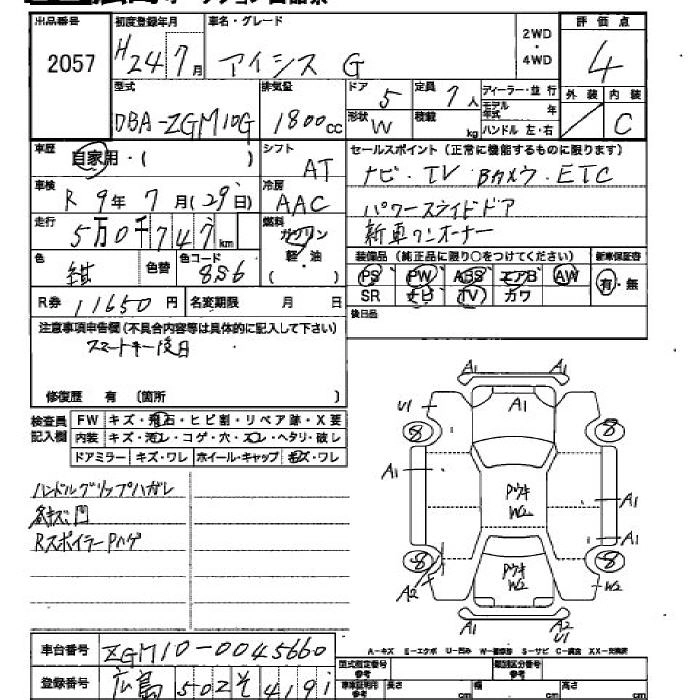 出品番号 初度登録年月 車名・グレード 2WD・4WD 評価点
2057 H24 7月 アイシス G 4
型式 排気量 ドア 5 定員 7人 ディーラー・並行 外装 内装
DBA-ZGM10G 1800cc 形状 W 積載 kg モデル年式 年 C
ハンドル 左・右
車歴 自家用・( ) シフト AT セールスポイント(正常に機能するものに限ります)
車検 R 9年 7月(29日) 冷房 AAC ナビ・TV Bカメラ・ETC
走行 5万0千747km 燃料 ガソリン 軽・油 ( ) パワースライドドア
新車ワンオーナー
色 紺 色替 色コード 8S6 装備品(純正品に限り○をつけてください) 新車保証書
PS PW ABS エアB AW 有・無
R券 11650円 名変期限 月 日 SR ナビ TV カワ
注意事項申告欄(不具合内容等は具体的に記入して下さい) 後日品
スマートキー後日
修復歴 有 (箇所 )
検査員記入欄 FW キズ・飛石・ヒビ割・リペア跡・X要
内装 キズ・汚レ・コゲ・穴・スレ・ヘタリ・破レ
ドアミラー キズ・ワレ ホイール・キャップ キズ・ワレ
ハンドルグリップハガレ
Rスポイラー Pハゲ
A1
U1 A1 A1
8 8
A1 Pウキ W2 A1
A1
8 Pウキ W2 8
A2 W2
A1 A2 U1
A-キズ E-エクボ U-凹み W-補修跡 S-サビ C-腐食 XX-交換済
車台番号 ZGM10-0045660
登録番号 広島 502 そ 4191
型式指定番号 参考 類別区分番号 参考
車庫証明用 参考 長さ cm 幅 cm 高さ cm